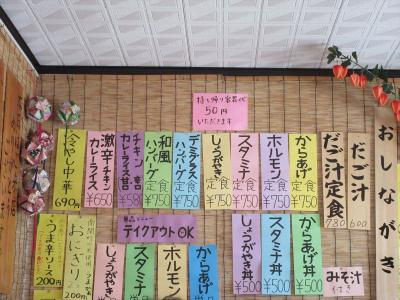 おしながき
だご汁
600
だご汁定食
780
からあげ
定食
¥750
ホルモン
定食
¥750
スタミナ
定食
¥750
しょうがやき
定食
¥750
デミグラス
ハンバーグ
定食
¥750
和風
ハンバーグ
定食
¥750
チキン
カレーライス
激辛チキン
カレーライス
¥650
冷やし中華
690円
持ち帰り容器代
50円
いただきます
みそ汁
付き
からあげ丼
¥500
スタミナ丼
¥500
しょうがやき丼
¥500
単品メニュー
テイクアウトOK
からあげ
ホルモン
スタミナ
しょうがやき
おにぎり
200円
うま辛ソース
200円